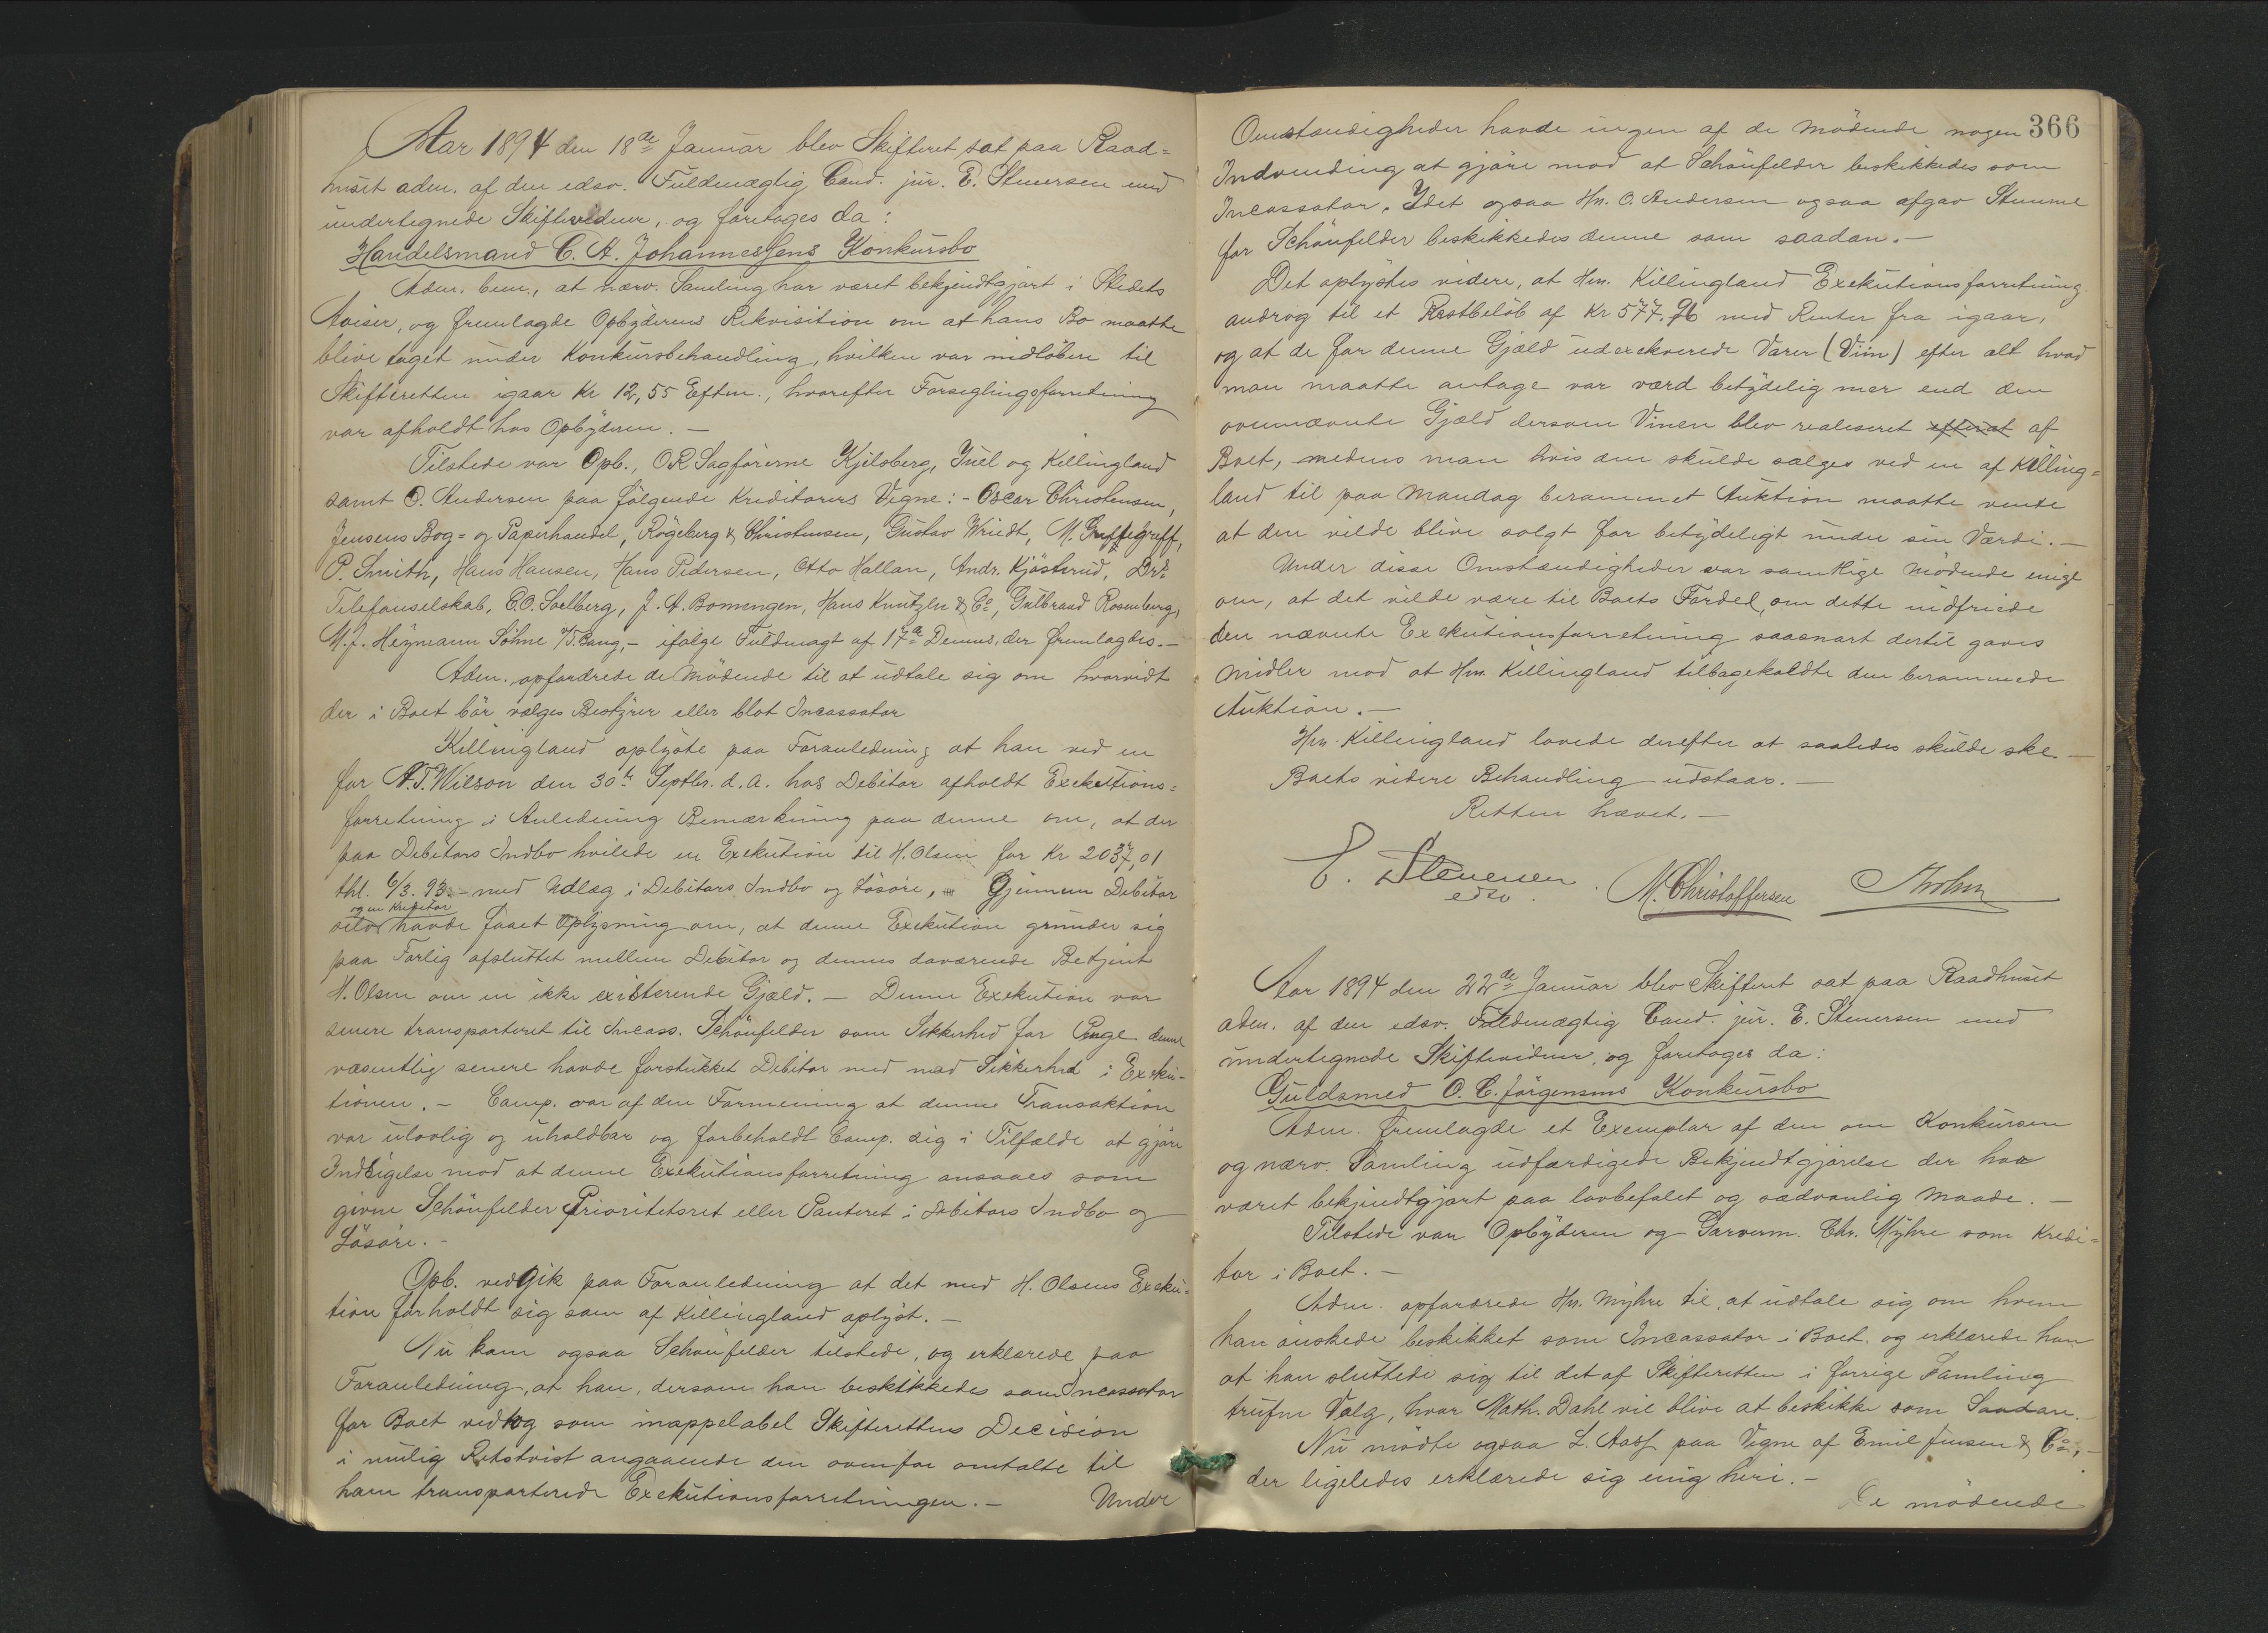 Aar 1894 den 18de Januar blev Skifteret sat paa Raad=
huset adm. af den edsv. Fuldmægtig Cand. jur. E. Stenersen med
undertegnede Skiftevidner, og foretoges da:
Handelsmand C. A. Johannessens Konkursbo
Adm. bem., at nærv. Samling har været bekjendtgjort i Stedets
Aviser, og fremlagde Opbyderens Rekvisition om at hans Bo maatte
blive taget under Konkursbehandling, hvilken var indløben til
Skifteretten igaar Kr 12,55 Eftm., hvorefter Forseglingsforretning
var afholdt hos Opbyderen. —
Tilstede var Opb., OR Sagførerne Kjelsberg, Juel og Killingland
samt O. Andersen paa følgende Kreditorers Vegne: - Oscar Christensen,
Jensens Bog= og Papirhandel, Røgeberg & Christensen, Gustav Wriedt, M. Graffegreff,
P. Smith, Hans Hansen, Hans Pedersen, Otto Hallan, Andr. Kjøsterud, Drs
Telefonselskab, C. O. Soelberg, J. A. Bomengen, Hans Knutzen & Co, Gulbrand Rosenberg,
M. J. Heymann Söhne v/ T. Bang, - ifølge Fuldmagt af 17de Dennes, der fremlagdes. —
Adm. opfordrede de Mødende til at udtale sig om hvorvidt
der i Boet bør vælges Bestyrer eller blot Incassator
Killingland oplyste paa Foranledning at han ved en
for A. T. Wilson den 30te Septbr. d. A. hos Debitor afholdt Exekutions=
forretning i Anledning Bemærkning paa denne om, at der
paa Debitors Indbo hvilede en Exekution til H. Olsen for Kr 2037,01
thl. 6/3. 93. - med Udlæg i Debitors Indbo og Løsøre, Gjennem Debitor
og en Kreditor
selv havde faaet Oplysning om, at denne Exekution grunder sig
paa Forlig afsluttet mellem Debitor og dennes daværende Betjent
H. Olsen om en ikke existerende Gjæld. — Denne Exekution var
senere transporteret til Incass. Schönfelder som Sikkerhed for Penge denne
væsentlig senere havde forstrækket Debitor med mod Sikkerhed i Exeku-
tionen. — Comp. var af den Formening at denne Transaktion
var ulovlig og uholdbar og forbeholdt Comp. sig i Tilfælde at gjøre
Indsigelse mod at denne Exekutionsforretning ansaaes som
given Schönfelder Prioritetsret eller Panteret i Debitors Indbo og
Løsøre. -
Opb. vedgik paa Foranledning at det med H. Olsens Exeku=
tion forholdt sig som af Killingland oplyst. —
Nu kom ogsaa Schönfelder tilstede, og erklærede paa
Foranledning, at han, dersom han beskikkedes som Incassator
for Boet vedtog som inappelabel Skifterettens Decision
i mulig Retstvist angaaende den ovenfor omtalte til
ham transporterede Exekutionsforretningen. — Under
366
Omstændigheder havde ingen af de Mødende nogen
Indvending at gjøre mod at Schönfelder beskikkedes som
Incassator. Idet ogsaa Hr. O. Andersen ogsaa afgav Stemme
for Schönfelder beskikkedes denne som saadan. —
Det oplystes videre, at Hrr. Killingland Exekutionsforretning
androg til et Restbeløb af Kr 577.96 med Renter fra igaar,
og at de for denne Gjæld udexekverede Varer (Viin) efter alt hvad
man maatte antage var værd betydelig mer end den
ovennævnte Gjæld dersom Vinen blev realiseret efterat af
Boet, medens man hvis den skulde sælges ved en af Killing=
land til paa Mandag berammet Auktion maatte vente
at den vilde blive solgt for betydeligt under sin Værdi. —
Under disse Omstændigheder var samtlige Mødende enige
om, at det vilde være til Boets Fordel, om dette indfriede
den nævnte Exekutionsforretning saasnart dertil gaves
Midler mod at Hrr. Killingland tilbagekaldte den berammede
Auktion. —
Hrr. Killingland lovede derefter at saaledes skulde ske. —
Boets videre Behandling udstaar. —
Retten hævet. —
E. Stenersen
edsv.
M. Christoffersen
Aar 1894 den 22de Januar blev Skifteret sat paa Raadhuset
adm. af den edsv. Fuldmægtig Cand. jur. E. Stenersen med
undertegnede Skiftevidner, og foretoges da:
Guldsmed O. C. Jørgensens Konkursbo
Adm. fremlagde et Exemplar af den om Konkursen
og nærv. Samling udfærdigede Bekjendtgjørelse der har
været bekjendtgjort paa lovbefalet og sædvanlig Maade. —
Tilstede var Opbyderen og Garverm. Chr. Myhre som Kredi=
tor i Boet. —
Adm. opfordrede Hr. Myhre til, at udtale sig om hvem
han ønskede beskikket som Incassator i Boet. og erklærede han
at han sluttede sig til det af Skifteretten i forrige Samling
trufne Valg, hvor Math. Dahl vil blive at beskikke som Saadan. —
Nu mødte ogsaa L. Aass paa Vegne af Emil Jensen & Co, —
der ligeledes erklærede sig enig heri. —
De mødende